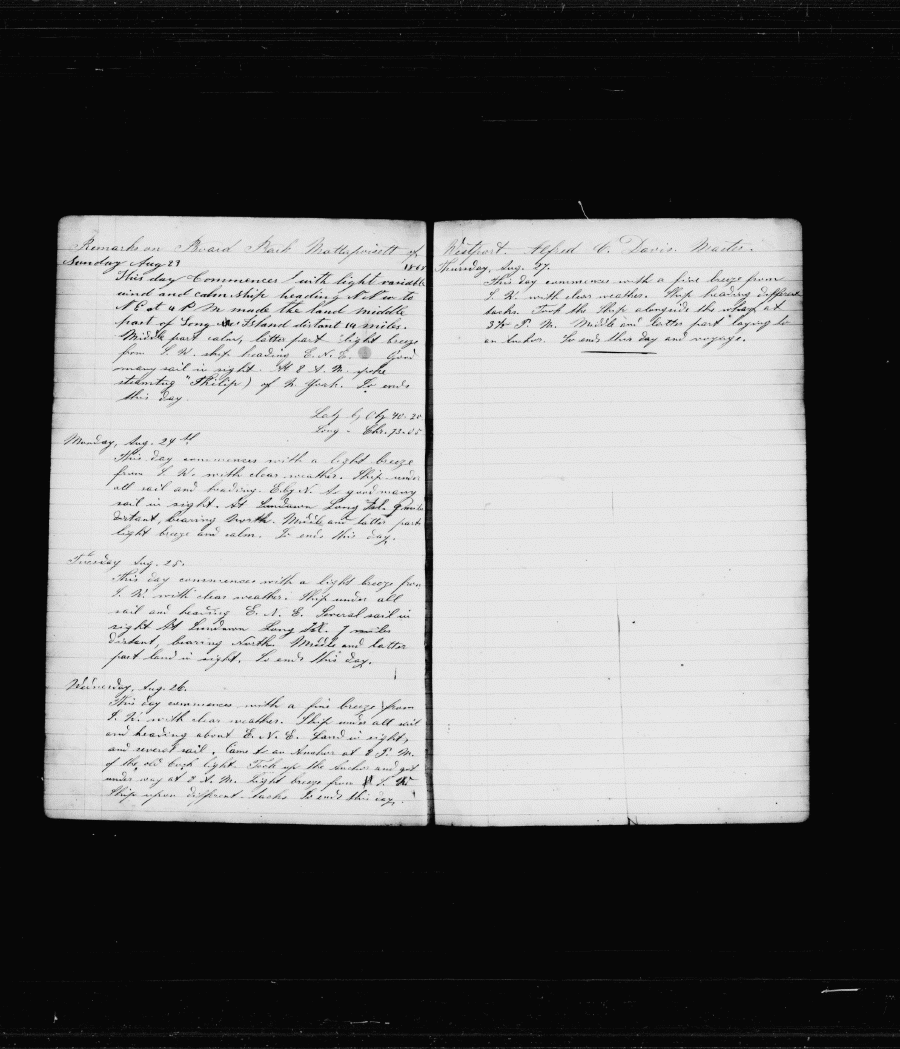 Remarks on Board Bark Mattapoisett of
Sunday Aug 23 1868
This day Commences with light variable
wind and calm ship heading N to
N E at 4 P M made the land middle
part of Long Island distant 14 miles.
Middle part calm, latter part light breeze
from S. W. ship heading E. N. E. Good
many sail in sight. At 8 A. M. spoke
steamtug "Philip) of N York. So ends
this day.
Lat by Ob 40-20
Long - Chr. 73-
Monday, Aug. 24th
This day commences with a light breeze
from S. W. with clear weather. Ship under
all sail and heading E by N. A good many
sail in sight. At Sundown Long Isl. 9 miles
distant, bearing North. Middle and latter parts
light breeze and calm. So ends this day.
Tuesday Aug. 25.
This day commences with a light breeze from
S. W. with clear weather. Ship under all
sail and heading E. N. E. Several sail in
sight At Sundown Long Isl. 7 miles
distant, bearing North. Middle and latter
part land in sight. So ends this day.
Wednesday, Aug. 26.
This day commences with a fine breeze from
S. W. with clear weather. Ship under all sail
and heading about E. N. E. Land in sight,
and several sail. Came to an Anchor at 8 P. M.
of the old Light. Took up the Anchor and got
under way at 2 A. M. Light breeze from S. W
Ship upon different tacks So ends this day.
Westport. Alfred C. Davis. Master.
Thursday, Aug. 27.
This day commences with a fine breeze from
S. W. with clear weather. Ship heading different
tacks. Took the Ship alongside the wharf at
3½ P. M. Middle and latter part laying to
an Anchor. So ends this day and voyage.